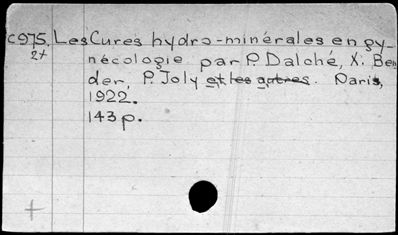 C975. Les Cures hydro-minérales en gy-
27
nécologie par P. Dalché, X. Ben
der, P. Joly et les autres. Paris,
1922.
143 p.